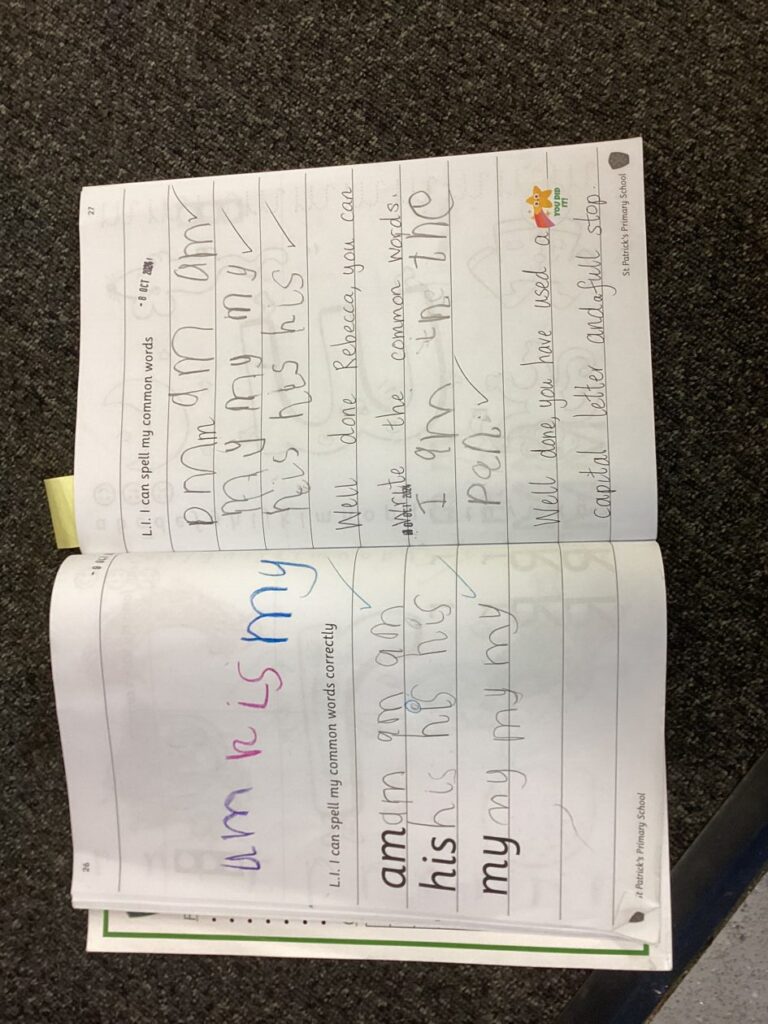 26
am his my
L.I. I can spell my common words correctly
am am am am
his his his his
my my my my
St Patrick's Primary School
27
- 8 OCT 2024
L.I. I can spell my common words
am am
my my my
his his his
Well done Rebecca, you can
write the common words.
OCT 2024
I am the
pan.
Well done, you have used a
YOU DID
IT!
capital letter and a full stop.
St Patrick's Primary School